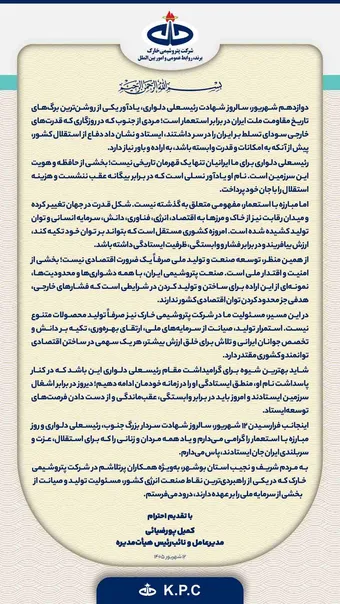 شرکت پتروشیمی خارک
برند، روابط عمومی و امور بین‌الملل
بسم الله الرحمن الرحیم
دوازدهم شهریور، سالروز شهادت رئیسعلی دلواری، یادآور یکی از روشن‌ترین برگ‌های
تاریخ مقاومت ملت ایران در برابر استعمار است؛ مردی از جنوب که در روزگاری که قدرت‌های
خارجی سودای تسلط بر ایران را در سر داشتند، ایستاد و نشان داد دفاع از استقلال کشور،
پیش از آنکه به امکانات و قدرت وابسته باشد، به اراده و باور نیاز دارد.
رئیسعلی دلواری برای ما ایرانیان تنها یک قهرمان تاریخی نیست؛ بخشی از حافظه و هویت
این سرزمین است. نام او یادآور نسلی است که در برابر بیگانه عقب ننشست و هزینه
استقلال را با جان خود پرداخت.
اما مبارزه با استعمار، مفهومی متعلق به گذشته نیست. شکل قدرت در جهان تغییر کرده
و میدان رقابت نیز از خاک و مرزها به اقتصاد، انرژی، فناوری، دانش، سرمایه انسانی و توان
تولید کشیده شده است. امروزه کشوری مستقل است که بتواند بر توان خود تکیه کند،
ارزش بیافریند و در برابر فشار و وابستگی، ظرفیت ایستادگی داشته باشد.
از همین منظر، توسعه صنعت و تولید ملی صرفاً یک ضرورت اقتصادی نیست؛ بخشی از
امنیت و اقتدار ملی است. صنعت پتروشیمی ایران، با همه دشواری‌ها و محدودیت‌ها،
نمونه‌ای از این اراده برای ساختن و تولید کردن در شرایطی است که فشارهای خارجی،
هدفی جز محدود کردن توان اقتصادی کشور ندارند.
در این مسیر، مسئولیت ما در شرکت پتروشیمی خارک نیز صرفاً تولید محصولات متنوع
نیست. استمرار تولید، صیانت از سرمایه‌های ملی، ارتقای بهره‌وری، تکیه بر دانش و
تخصص جوانان ایرانی و تلاش برای خلق ارزش بیشتر، هر یک سهمی در ساختن اقتصادی
توانمند و کشوری مقتدر دارد.
شاید بهترین شیوه برای گرامیداشت مقام رئیسعلی دلواری این باشد که در کنار
پاسداشت نام او، منطق ایستادگی او را در زمانه خودمان ادامه دهیم؛ دیروز در برابر اشغال
سرزمین ایستادند و امروز باید در برابر وابستگی، عقب‌ماندگی و از دست دادن فرصت‌های
توسعه ایستاد.
اینجانب فرارسیدن ۱۲ شهریور، سالروز شهادت سردار بزرگ جنوب، رئیسعلی دلواری و روز
مبارزه با استعمار را گرامی می‌دارم و یاد همه مردان و زنانی را که برای استقلال، عزت و
سربلندی ایران جان ایستادند، پاس می‌دارم.
به مردم شریف و نجیب استان بوشهر، به‌ویژه همکاران پرتلاشم در شرکت پتروشیمی
خارک که در یکی از راهبردی‌ترین نقاط صنعت انرژی کشور، مسئولیت تولید و صیانت از
بخشی از سرمایه ملی را بر عهده دارند، درود می‌فرستم.
با تقدیم احترام
کمیل پورضیائی
مدیرعامل و نائب‌رئیس هیأت‌مدیره
۱۲ شهریور ۱۴۰۵
K.P.C